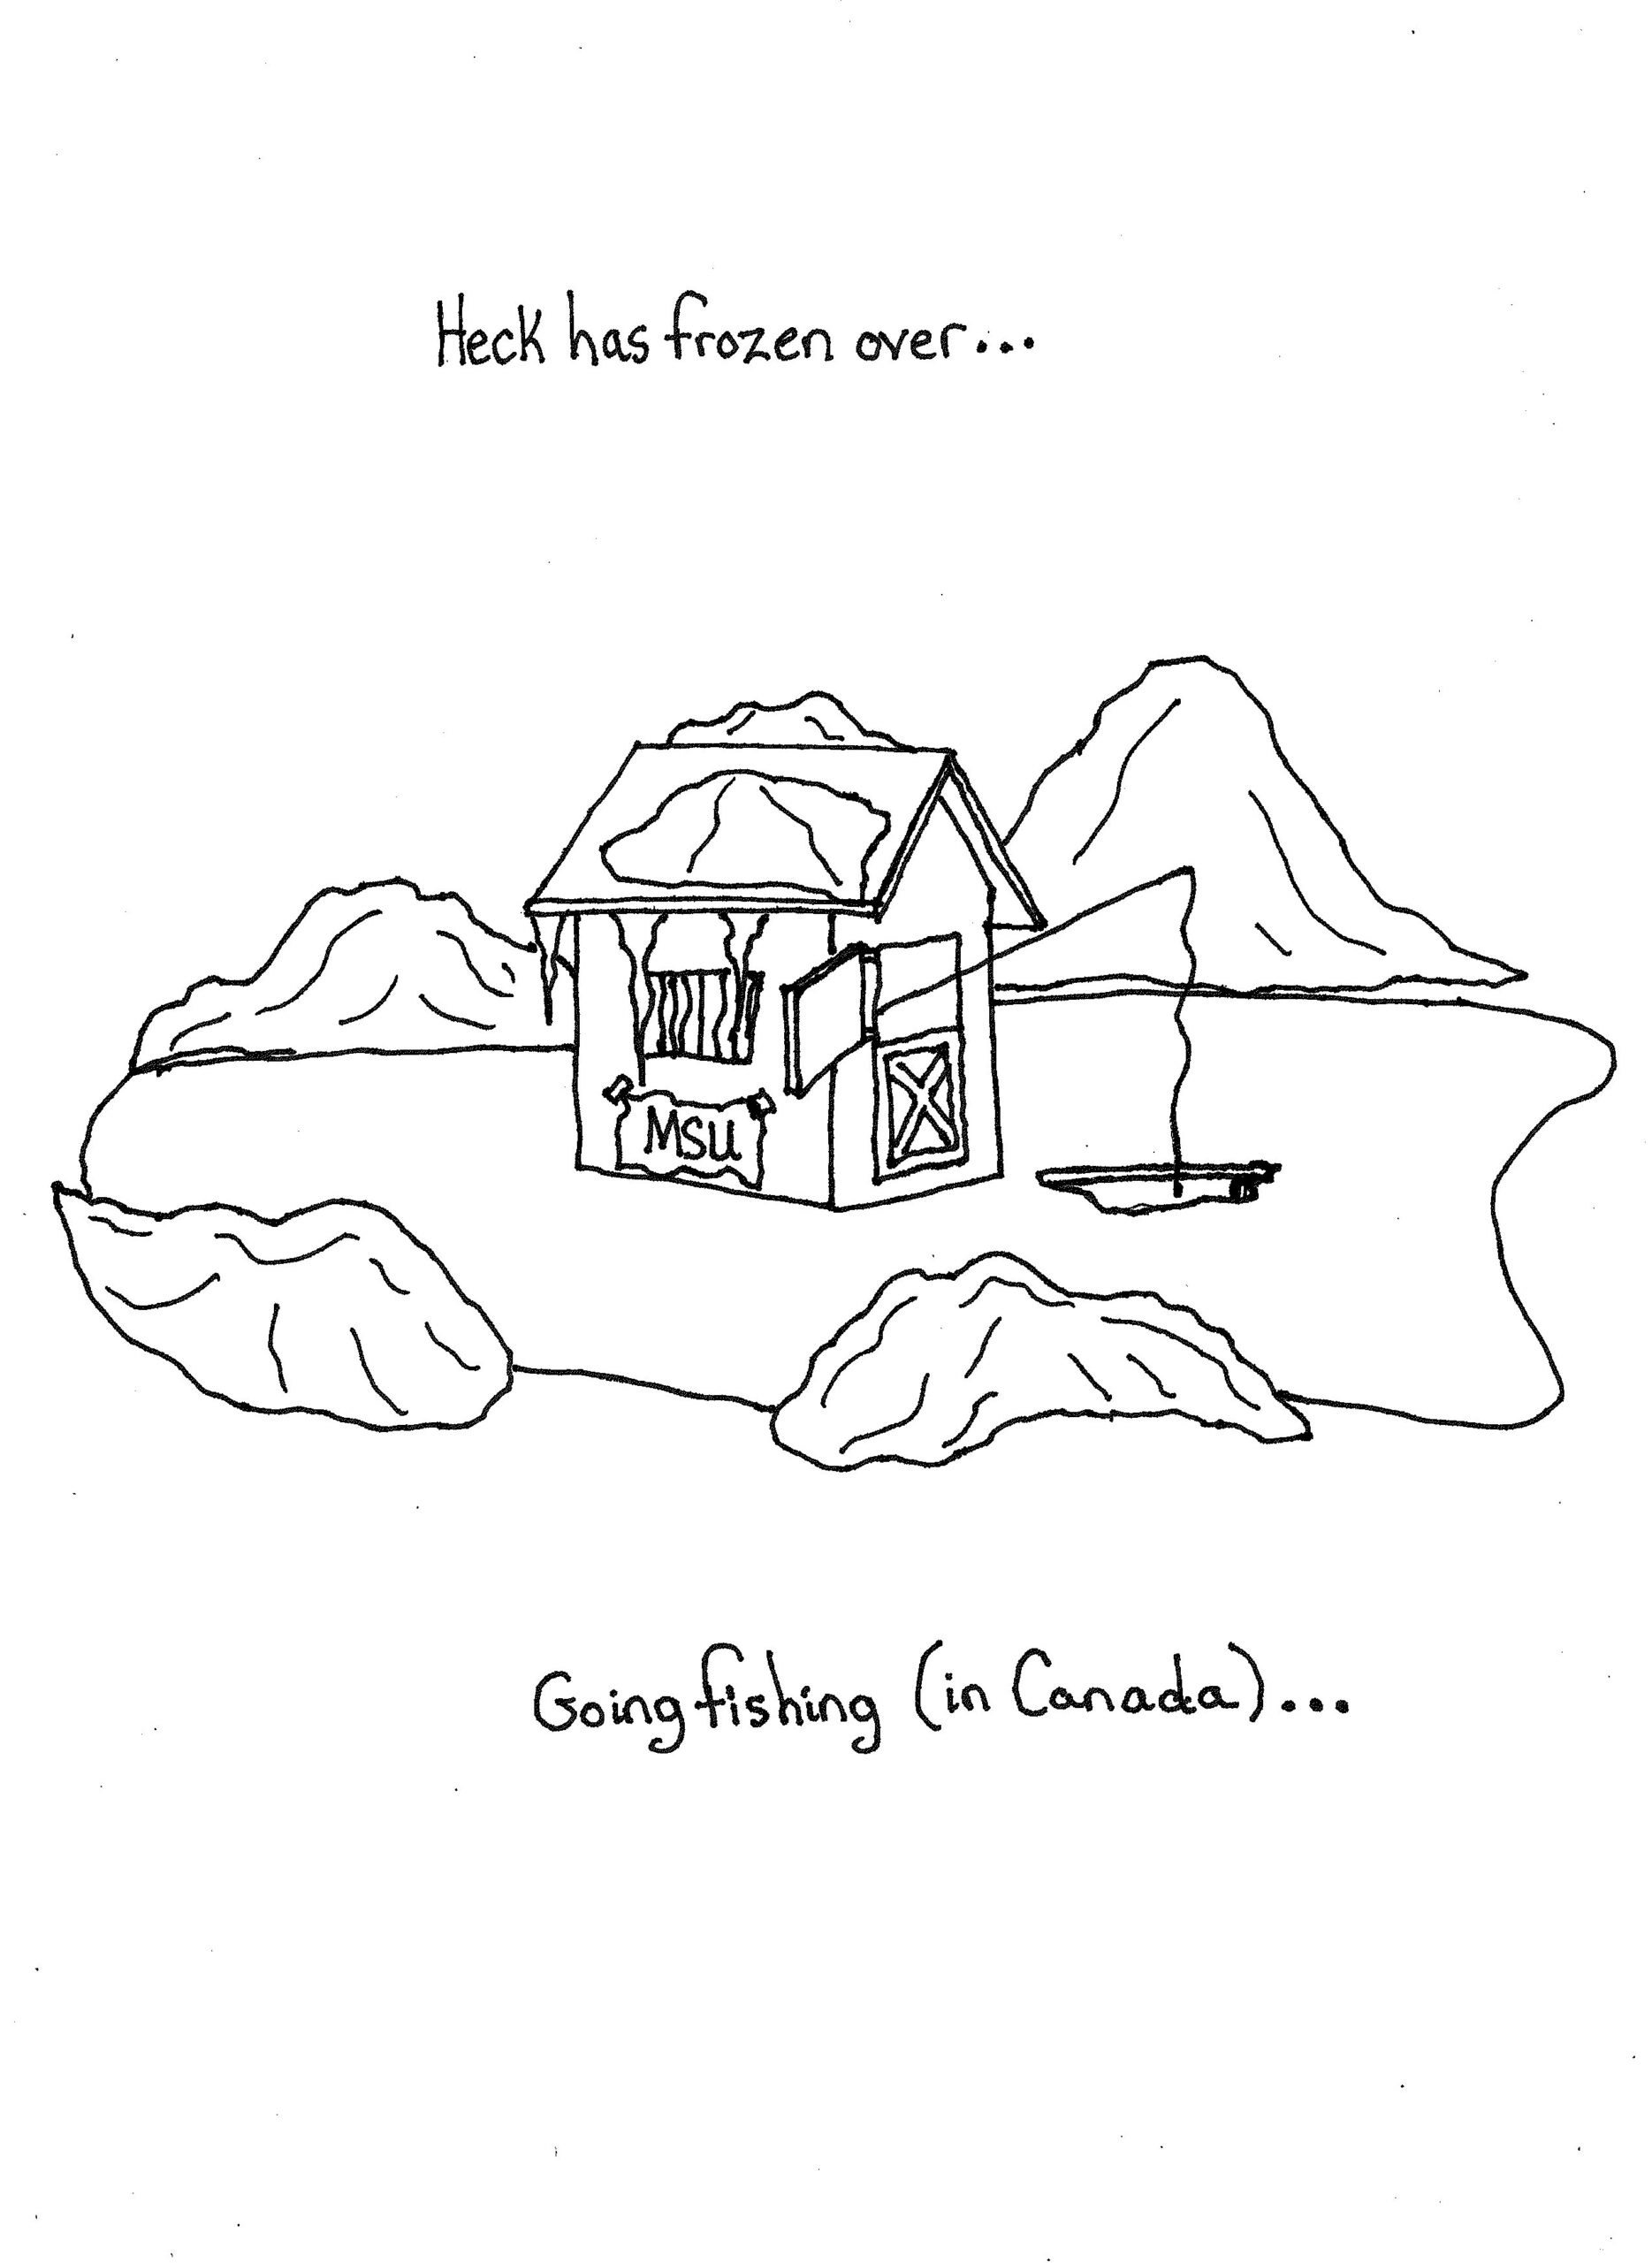 Heck has frozen over...
MSU
Going fishing (in Canada)...